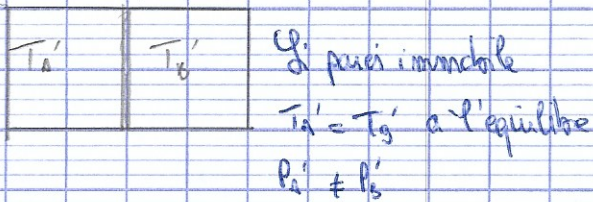 T_A' T_B'
Si paroi immobile
T_A' = T_B' a l'équilibre
P_A' ≠ P_B'